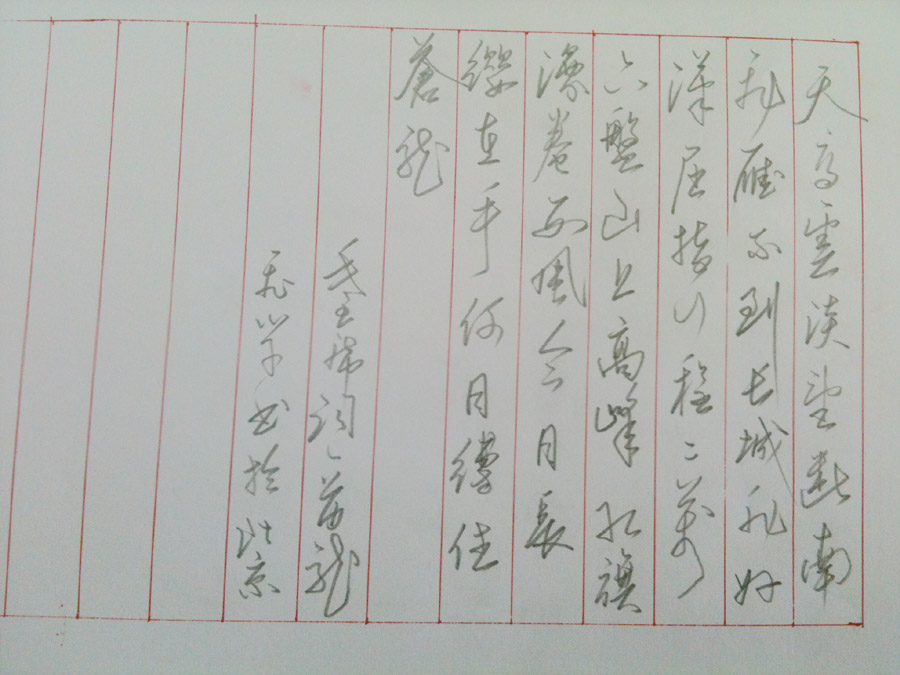 天高雲淡望斷南
飛雁不到长城非好
漢屈指行程二萬
六盤山上高峰红旗
漫卷西風今日長
纓在手何日縛住
蒼龍
毛主席詞一首龍
書於北京